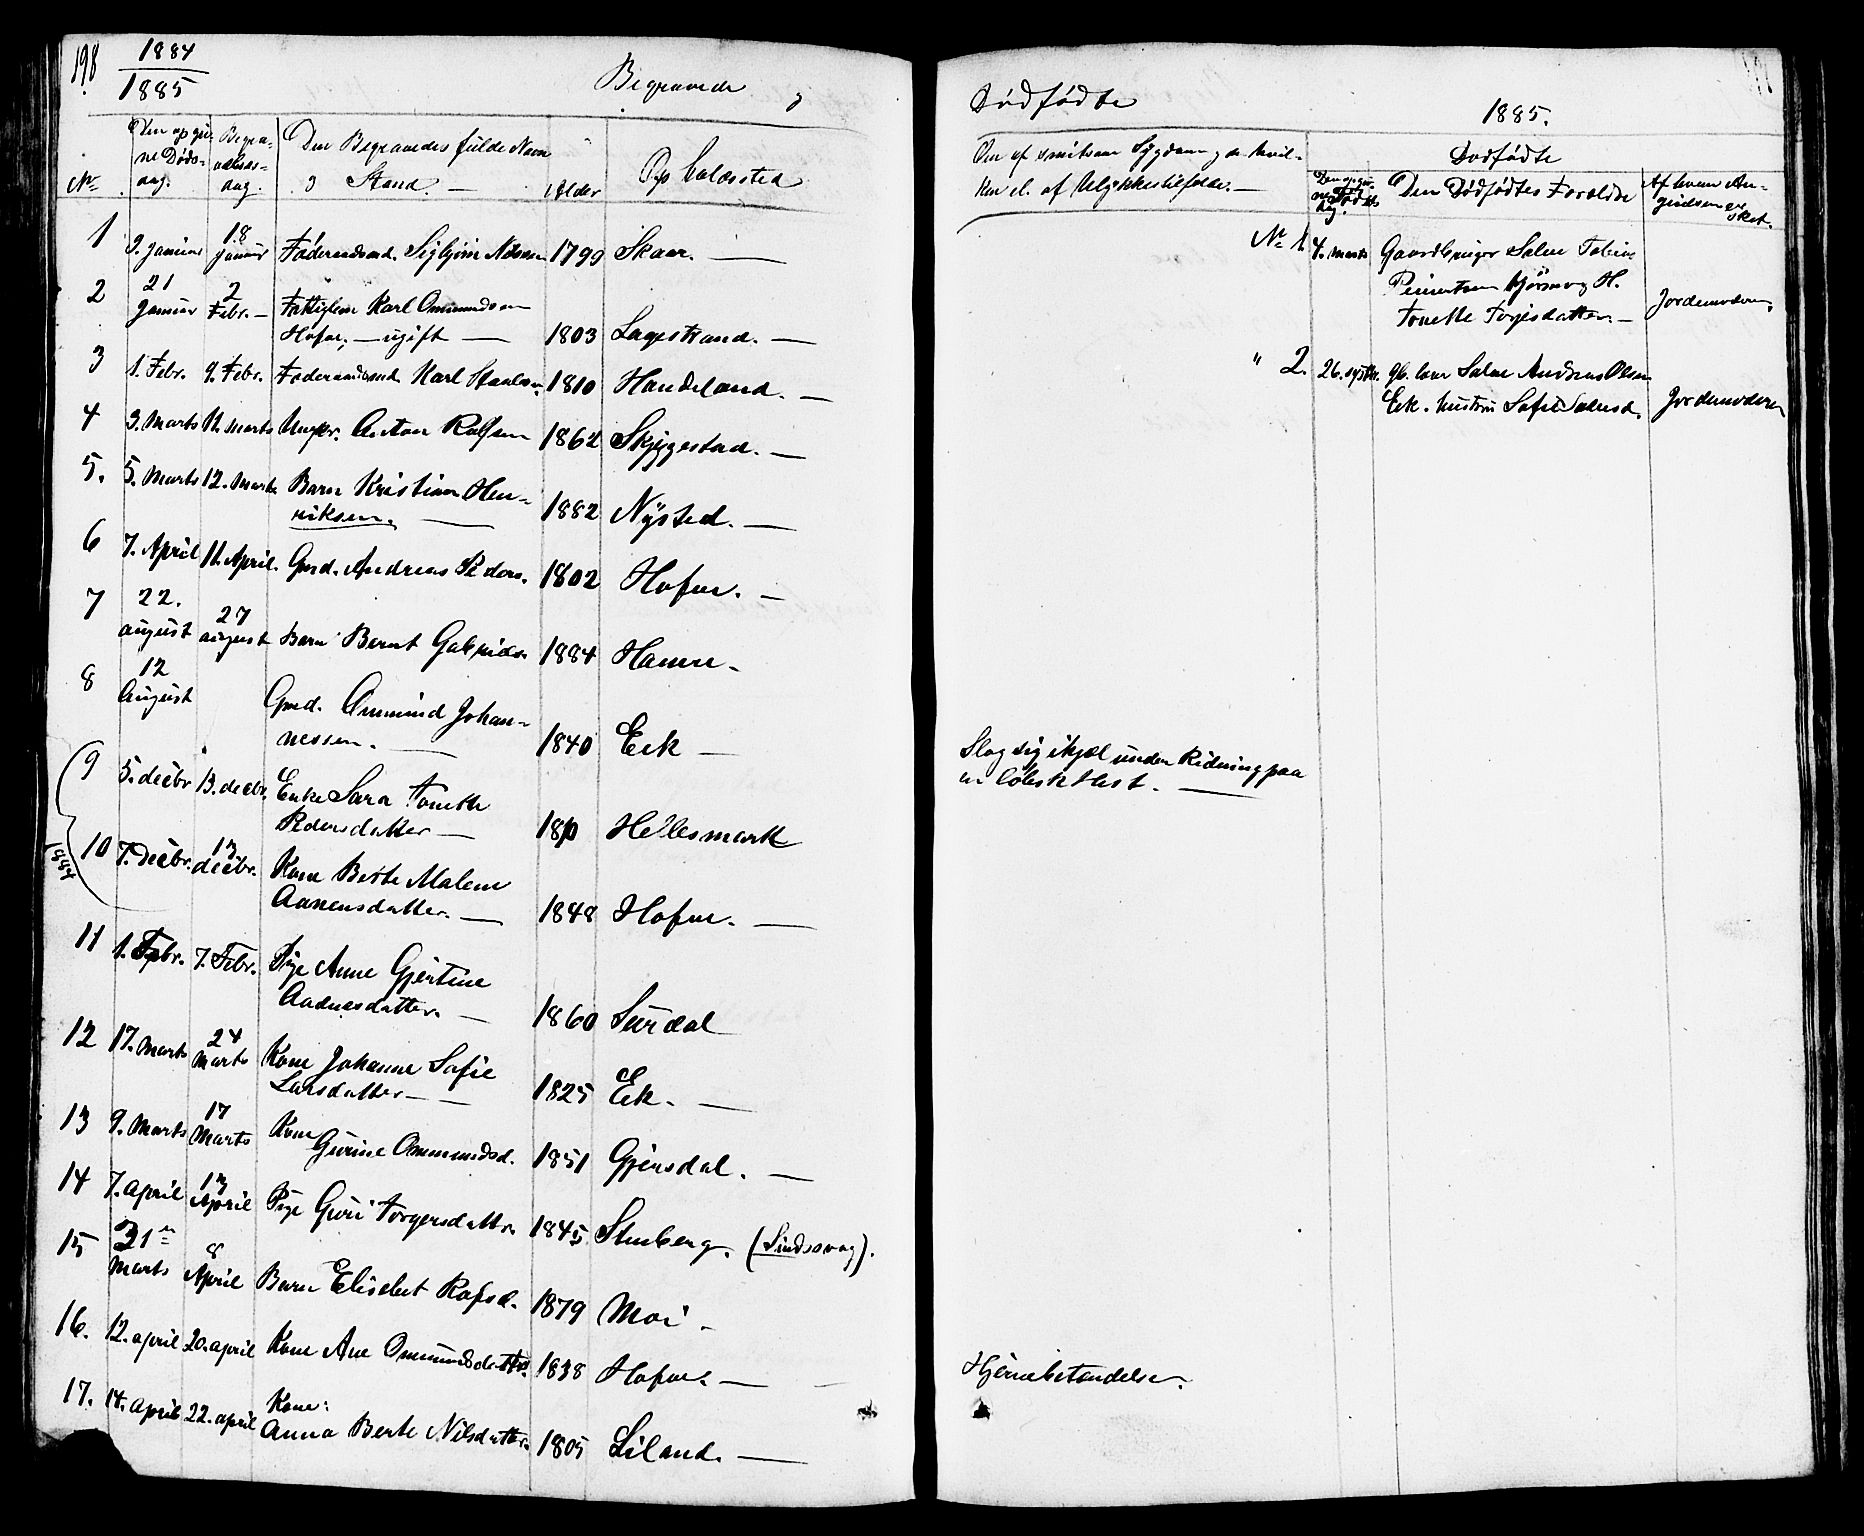 198
1884
1885
Begravede
No
Den opgivne Dødsdag.
Begravelsesdag.
Den Begravedes fulde Navn
Stand. —
Alder
Opholdssted
1 9. Januar 18 Januar Føderaadsmd. Sigbjørn Nilssen 1799 Skaar. —
2 21 Januar 2 Febr. — Fattiglem Karl Ommundsen
Hofar, — ugift — 1803 Lagestrand. —
3 1. Febr. 9. Febr. Føderaadsmd. Karl Staalesen 1810 Haadeland. —
4 3. Marts 11. Marts Ungkr. Anton Rolfsen 1862 Skjeggestad. —
5. 5. Marts 12. Marts Barn Kristian Hen-
riksen. — 1882 Nysted. —
6 7. April 11. April. Gmd. Andreas Peders. 1802 Hofar. —
7 22. august 27 august Barn Bernt Gabriels. 1884 Hamre —
8 12 August Gmd. Ommund Johan-
nessen. — 1840 Eek —
9 5. decbr 13. decbr. Enke Sara Tonette
Pedersdatter — 1810 Hellesmark
1884
10 7. decbr. 13 decbr. Kone Berte Malene
Aanensdatter. — 1848 Hofar. —
11 1. Febr. 7. Febr. Pige Anne Gjertine
Aadnesdatter. — 1860 Surdal
12 17. Marts 24 Marts Kone Johanne Sofie
Larsdatter — 1825 Eek. —
13 9. Marts 17 Marts Kone
Gurine Ommundsd. 1851 Gjersdal. —
14 7. april 13 April Pige Guri Torgersdattr. 1845 Stenberg. (Sindssvag).
15 31 Marts 8 April Barn Elisebet Rolfsd. 1879 Moi —
16. 12. april 20. april Kone Ane Ommundsdattr. 1838 Hofar. —
17. 14. april 22. april Kone:
Anna Berte Nilsdatter. 1805 Liland. —
Dødfødte
1885.
Om af smitsom Sygdom og da hvil-
ken el. af Ulykkestilfælde. —
Dødfødte
Den Dødfødtes Forældre
Af hvem An-
givelsen er
sket.
No 1. 4. Marts Gaardbruger Salve Tobias
Hjørmo og H.
Tonette Terjesdatter. — Jordemoderen.
" 2. 26. Gb. Salve Andreas Olsen
Eek. hustru Sofie Salvesd. Jordemoderen
Slog sig ihjæl under Ridning paa
en løbsk Hest. —
Hjernebetændelse.